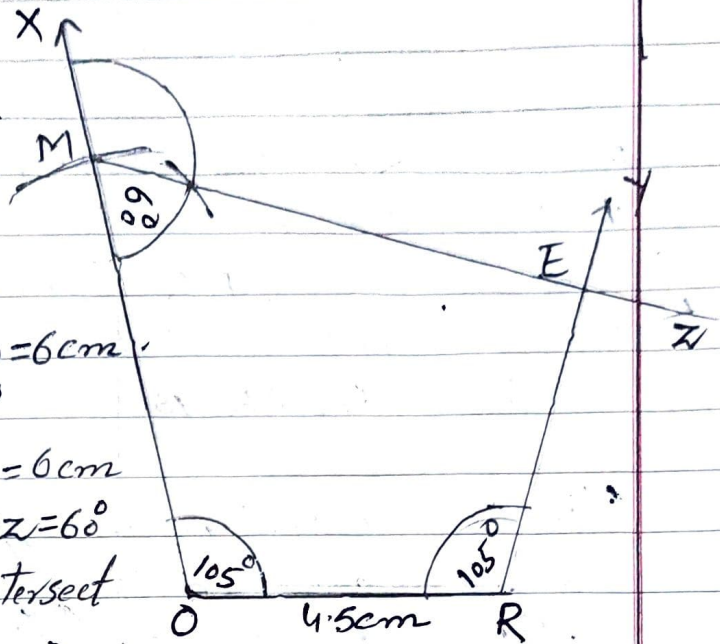 X
M
60°
Y
E
Z
=6cm
=6cm
Z=60°
tersect
105°
105°
O
4.5cm
R